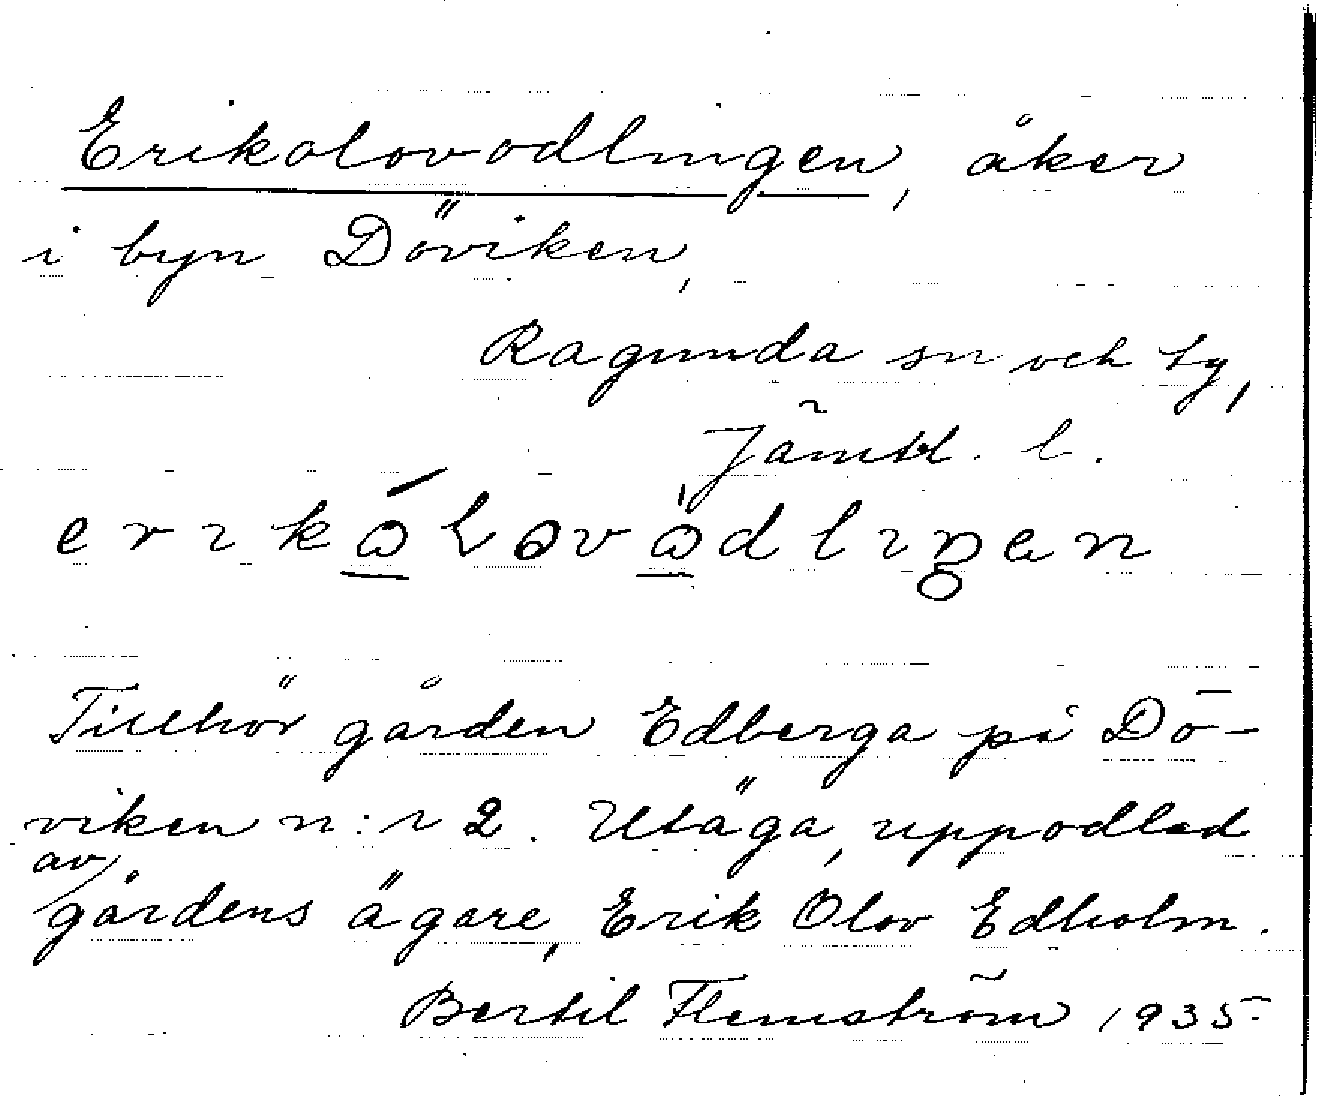 Erikolovodlingen, åker
i byn Döviken,
Ragunda sn och tg,
Jämtl. l.
erikólovòdlingen
Tillhör gården Edberga på Dö-
viken n:r 2. Utäga, uppodlad
av
gårdens ägare, Erik Olov Edholm.
Bertil Flemström 1935.